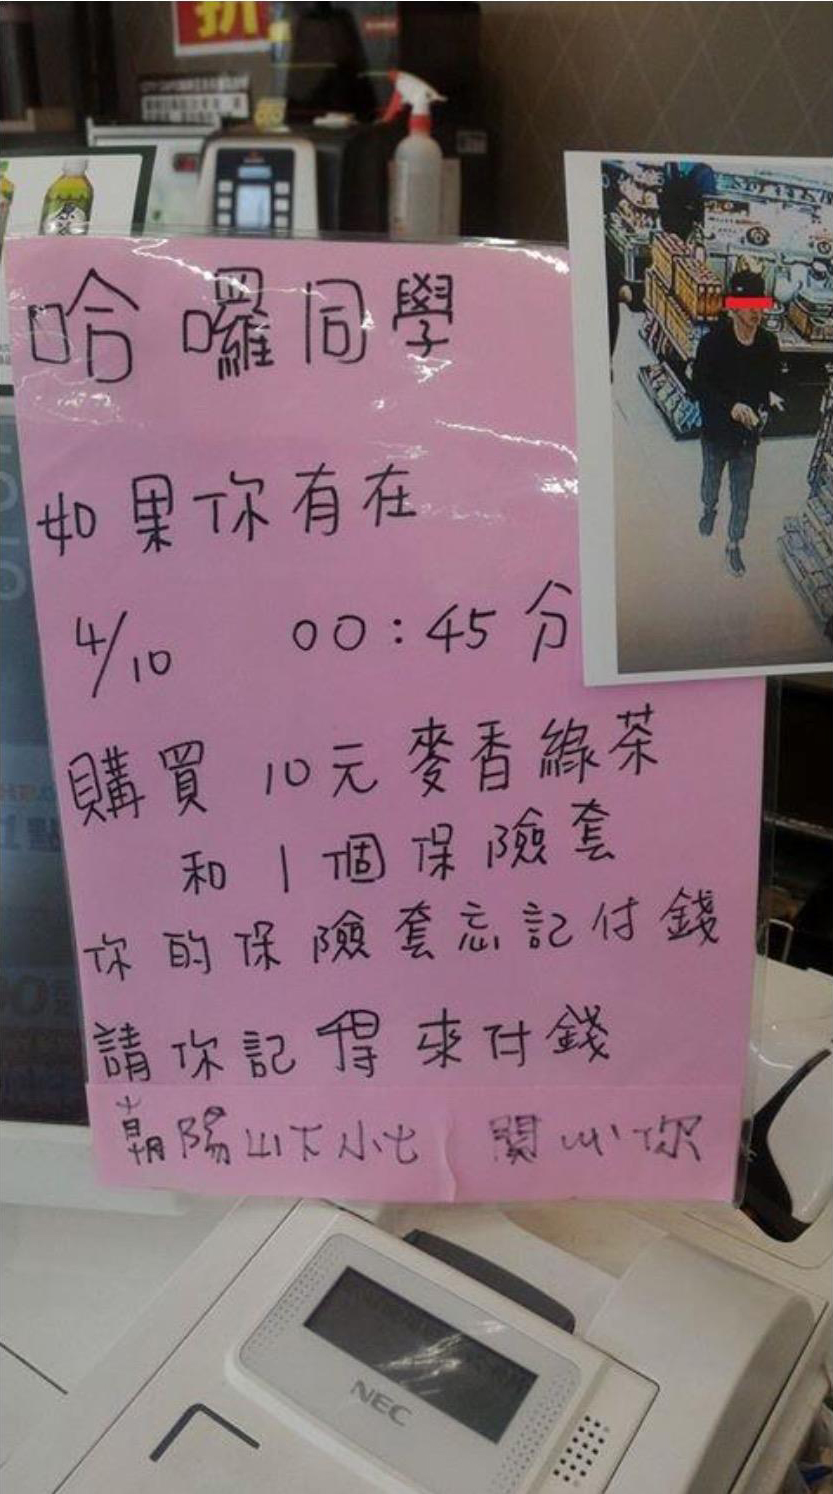 折
原萃
哈囉同學
如果你有在
4/10 00:45分
購買 10元麥香綠茶
和1個保險套
你的保險套忘記付錢
請你記得來付錢
朝陽山下小七 關心你
NEC